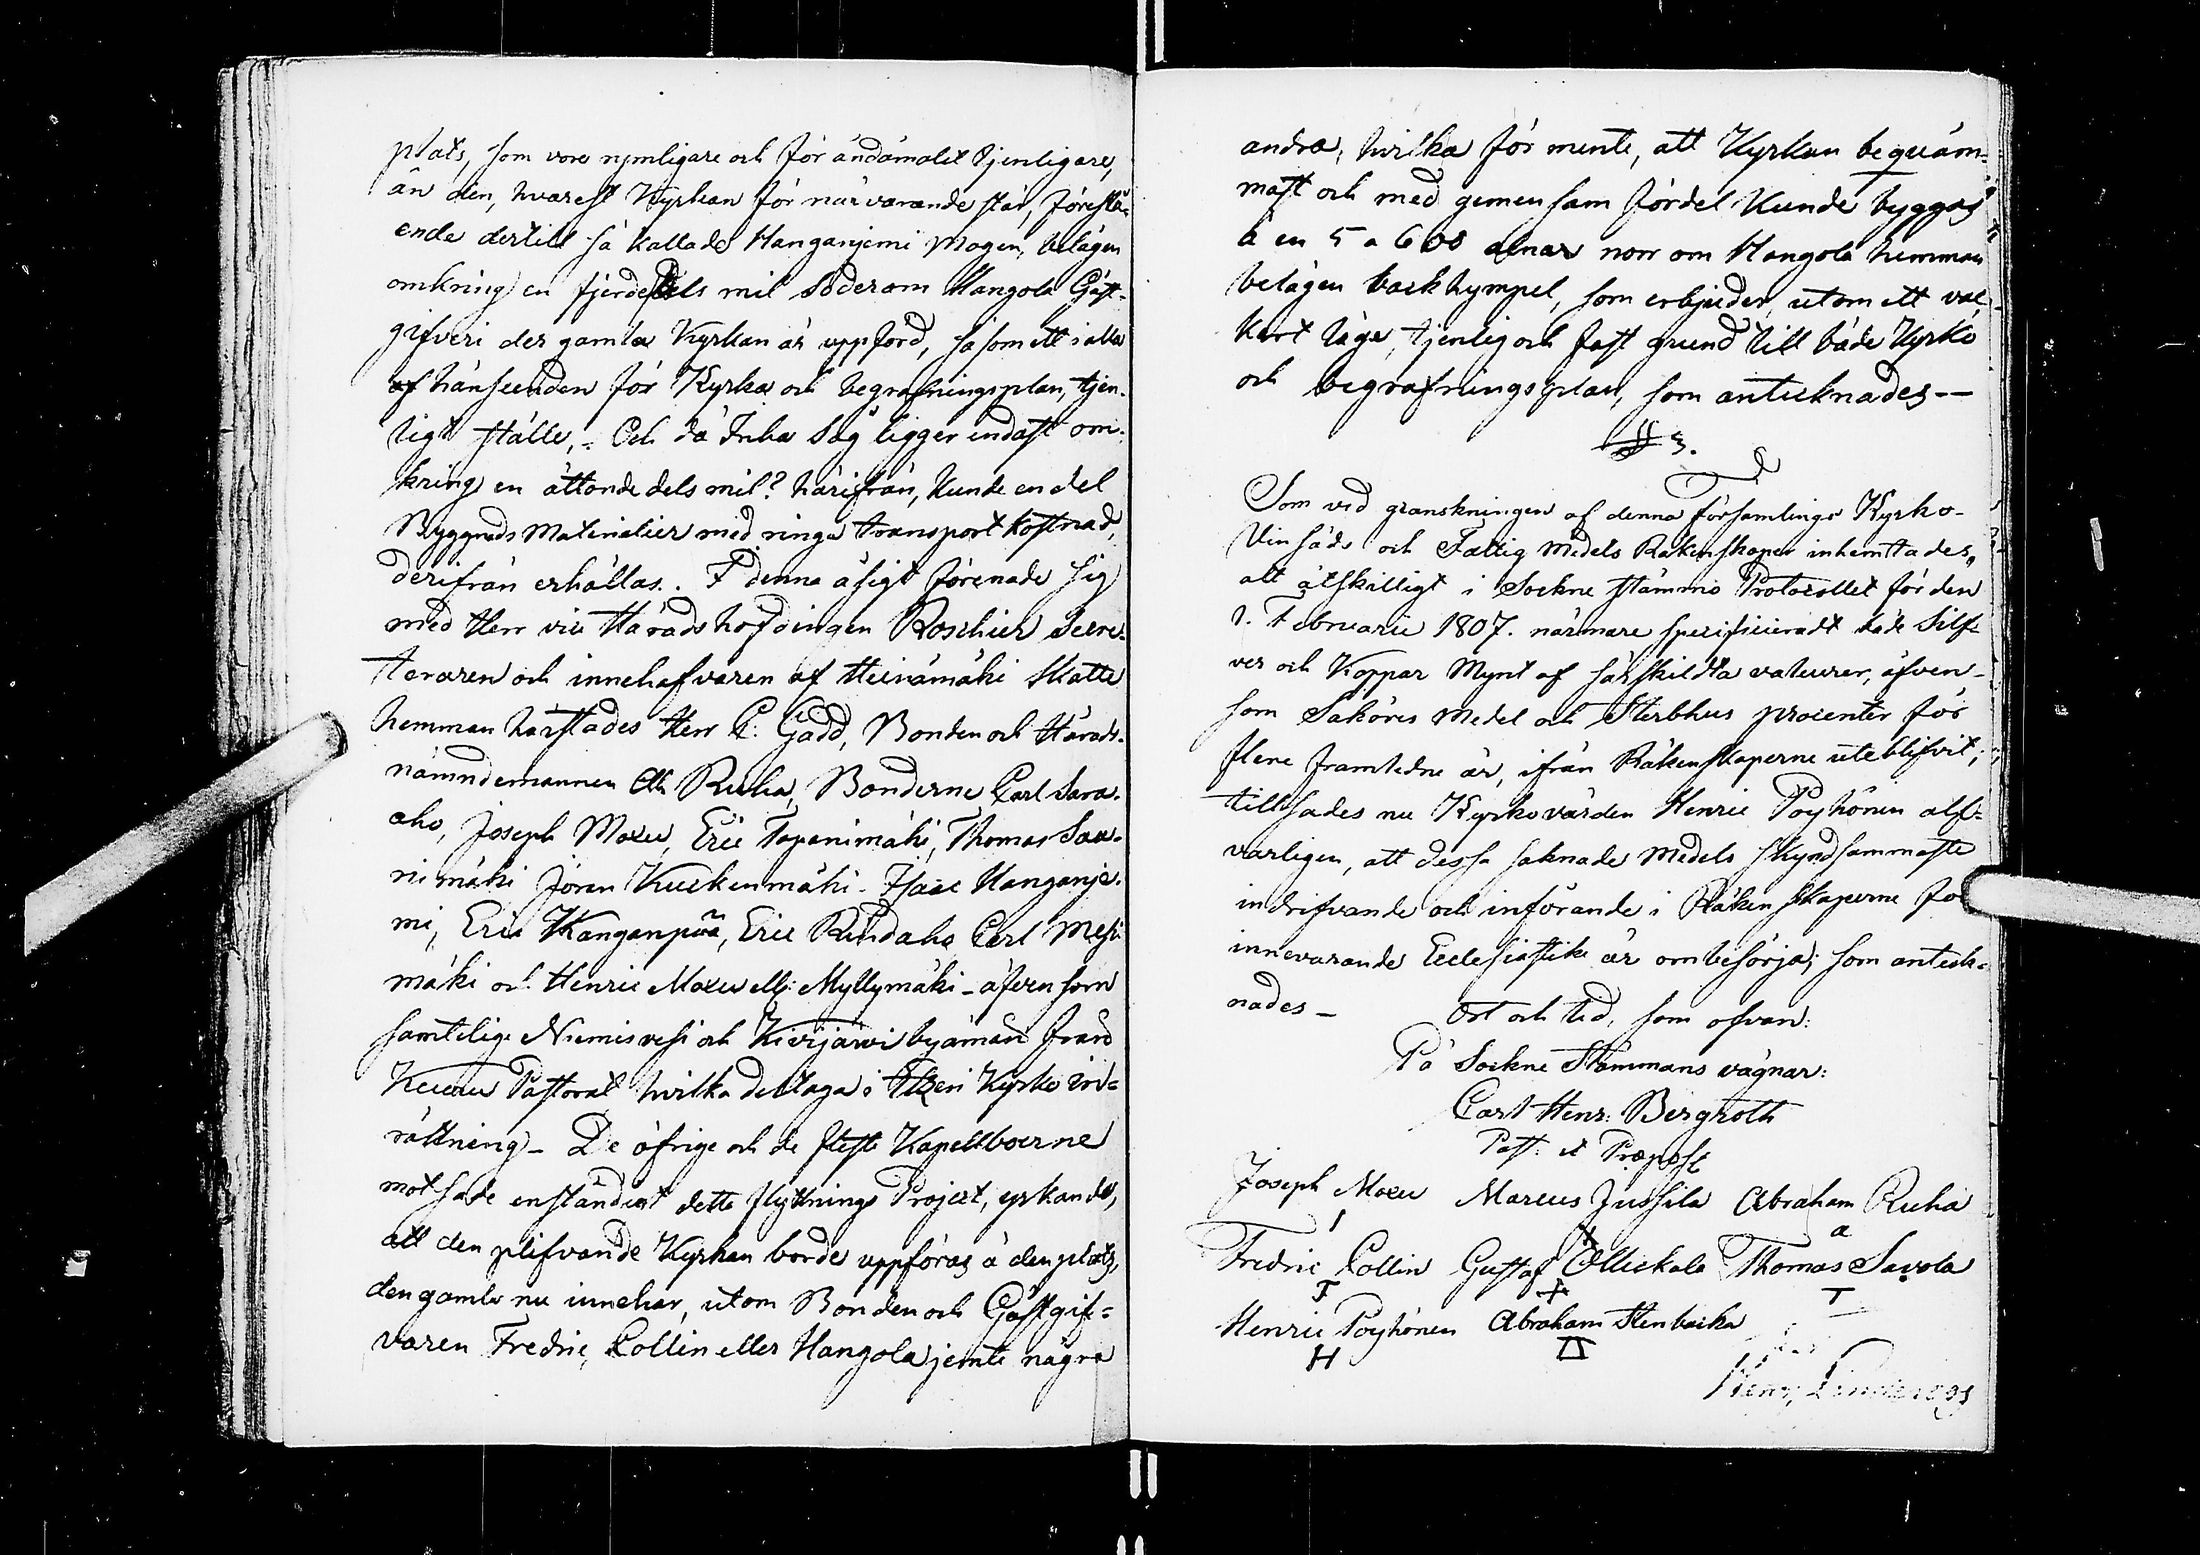 plats, som vore rymligare och för ändamålet tjenligare,
än den, hvarest Kyrkan för närvarande står, föreslå-
ende dertill så kallade Hanganjemi Magen, belägen
omkring en fjerdedels mil söderom Hangola Gäst-
gifveri der gamla Kyrkan är uppförd, såsom ett i alla
hänseenden för Kyrka och begrafningsplan, tjen-
ligt ställe, Och då Inha Såg ligger endast om-
kring en åttondedels mil? härifrån, kunde en del
Byggnads Materialier med ringa transport kostnad,
derifrån erhållas. I denna åsigt förenade sig
med Herr vice Häradshöfdingen Roschier Secre-
teraren och innehafvaren af Heinämäki Skatte
hemman härstädes Herr C. Gadd, Bonden och Härads-
nämndemannen Ab. Ruha, Bönderne Carl Sara-
aho, Joseph Moxu, Eric Tapanimäki, Thomas Saa-
nimäki Jöran Kuckenmäki - Isaac Hanganje-
mi, Eric Kanganpää, Eric Rindaho Carl Mesi-
mäki och Henric Moxu ell: Myllymäki - äfvensom
samtelige Niemisvesi och Kivijärvi byamän från
Keuru Pastorat hvilka deltaga i Etseri Kyrko in-
rättning - De öfrige och de fleste Kapellboerne
motsade enständigt detta flyttnings Project, yrkande,
att den blifvande Kyrkan borde uppföras å den plats,
den gamla nu innehar, utom Bonden och Gästgif-
varen Fredric Collin eller Hangola jemte några
andra, hvilka förmente, att Kyrkan beqväm-
mast och med gemensam fördel kunde byggas
å en 5 a 600 alnar norr om Hangola hemman
belägen backhympel, som erbjuder, utom ett vac-
kert läge, tjenlig och fast grund till både Kyrko
och begrafningsplan, som antecknades --
§ 3.
Som vid granskningen af denna Församlings Kyrko-
Vinsäds och Fattig Medels Räkenskaper inhemtades,
att åtskilligt i Sockne Stämmo Protocollet för den
1. Februarii 1807. närmare specificieradt både Silf-
ver och Koppar Mynt af särskildta valeurer, äfven-
som Saköres Medel och Sterbhus procenter för
flere framledne år, ifrån Räkenskaperne uteblifvit;
tillsades nu Kyrkovärden Henric Pöyhönen alf-
varligen, att dessa saknade Medels skyndsammaste
indrifvande och införande i Räkenskaperne för
innevarande Ecclesiastike år ombesörja; som anteck-
nades -
Ort och tid, som ofvan:
På Sockne Stämmans vägnar:
Carl Henr: Bergroth
Past: et Præpost
Joseph Moxu Marcus Jussila Abraham Ruha
Fredric Collin Gustaf Ollickala Thomas Savola
Henric Pöyhönen Abraham Stenbacka
H